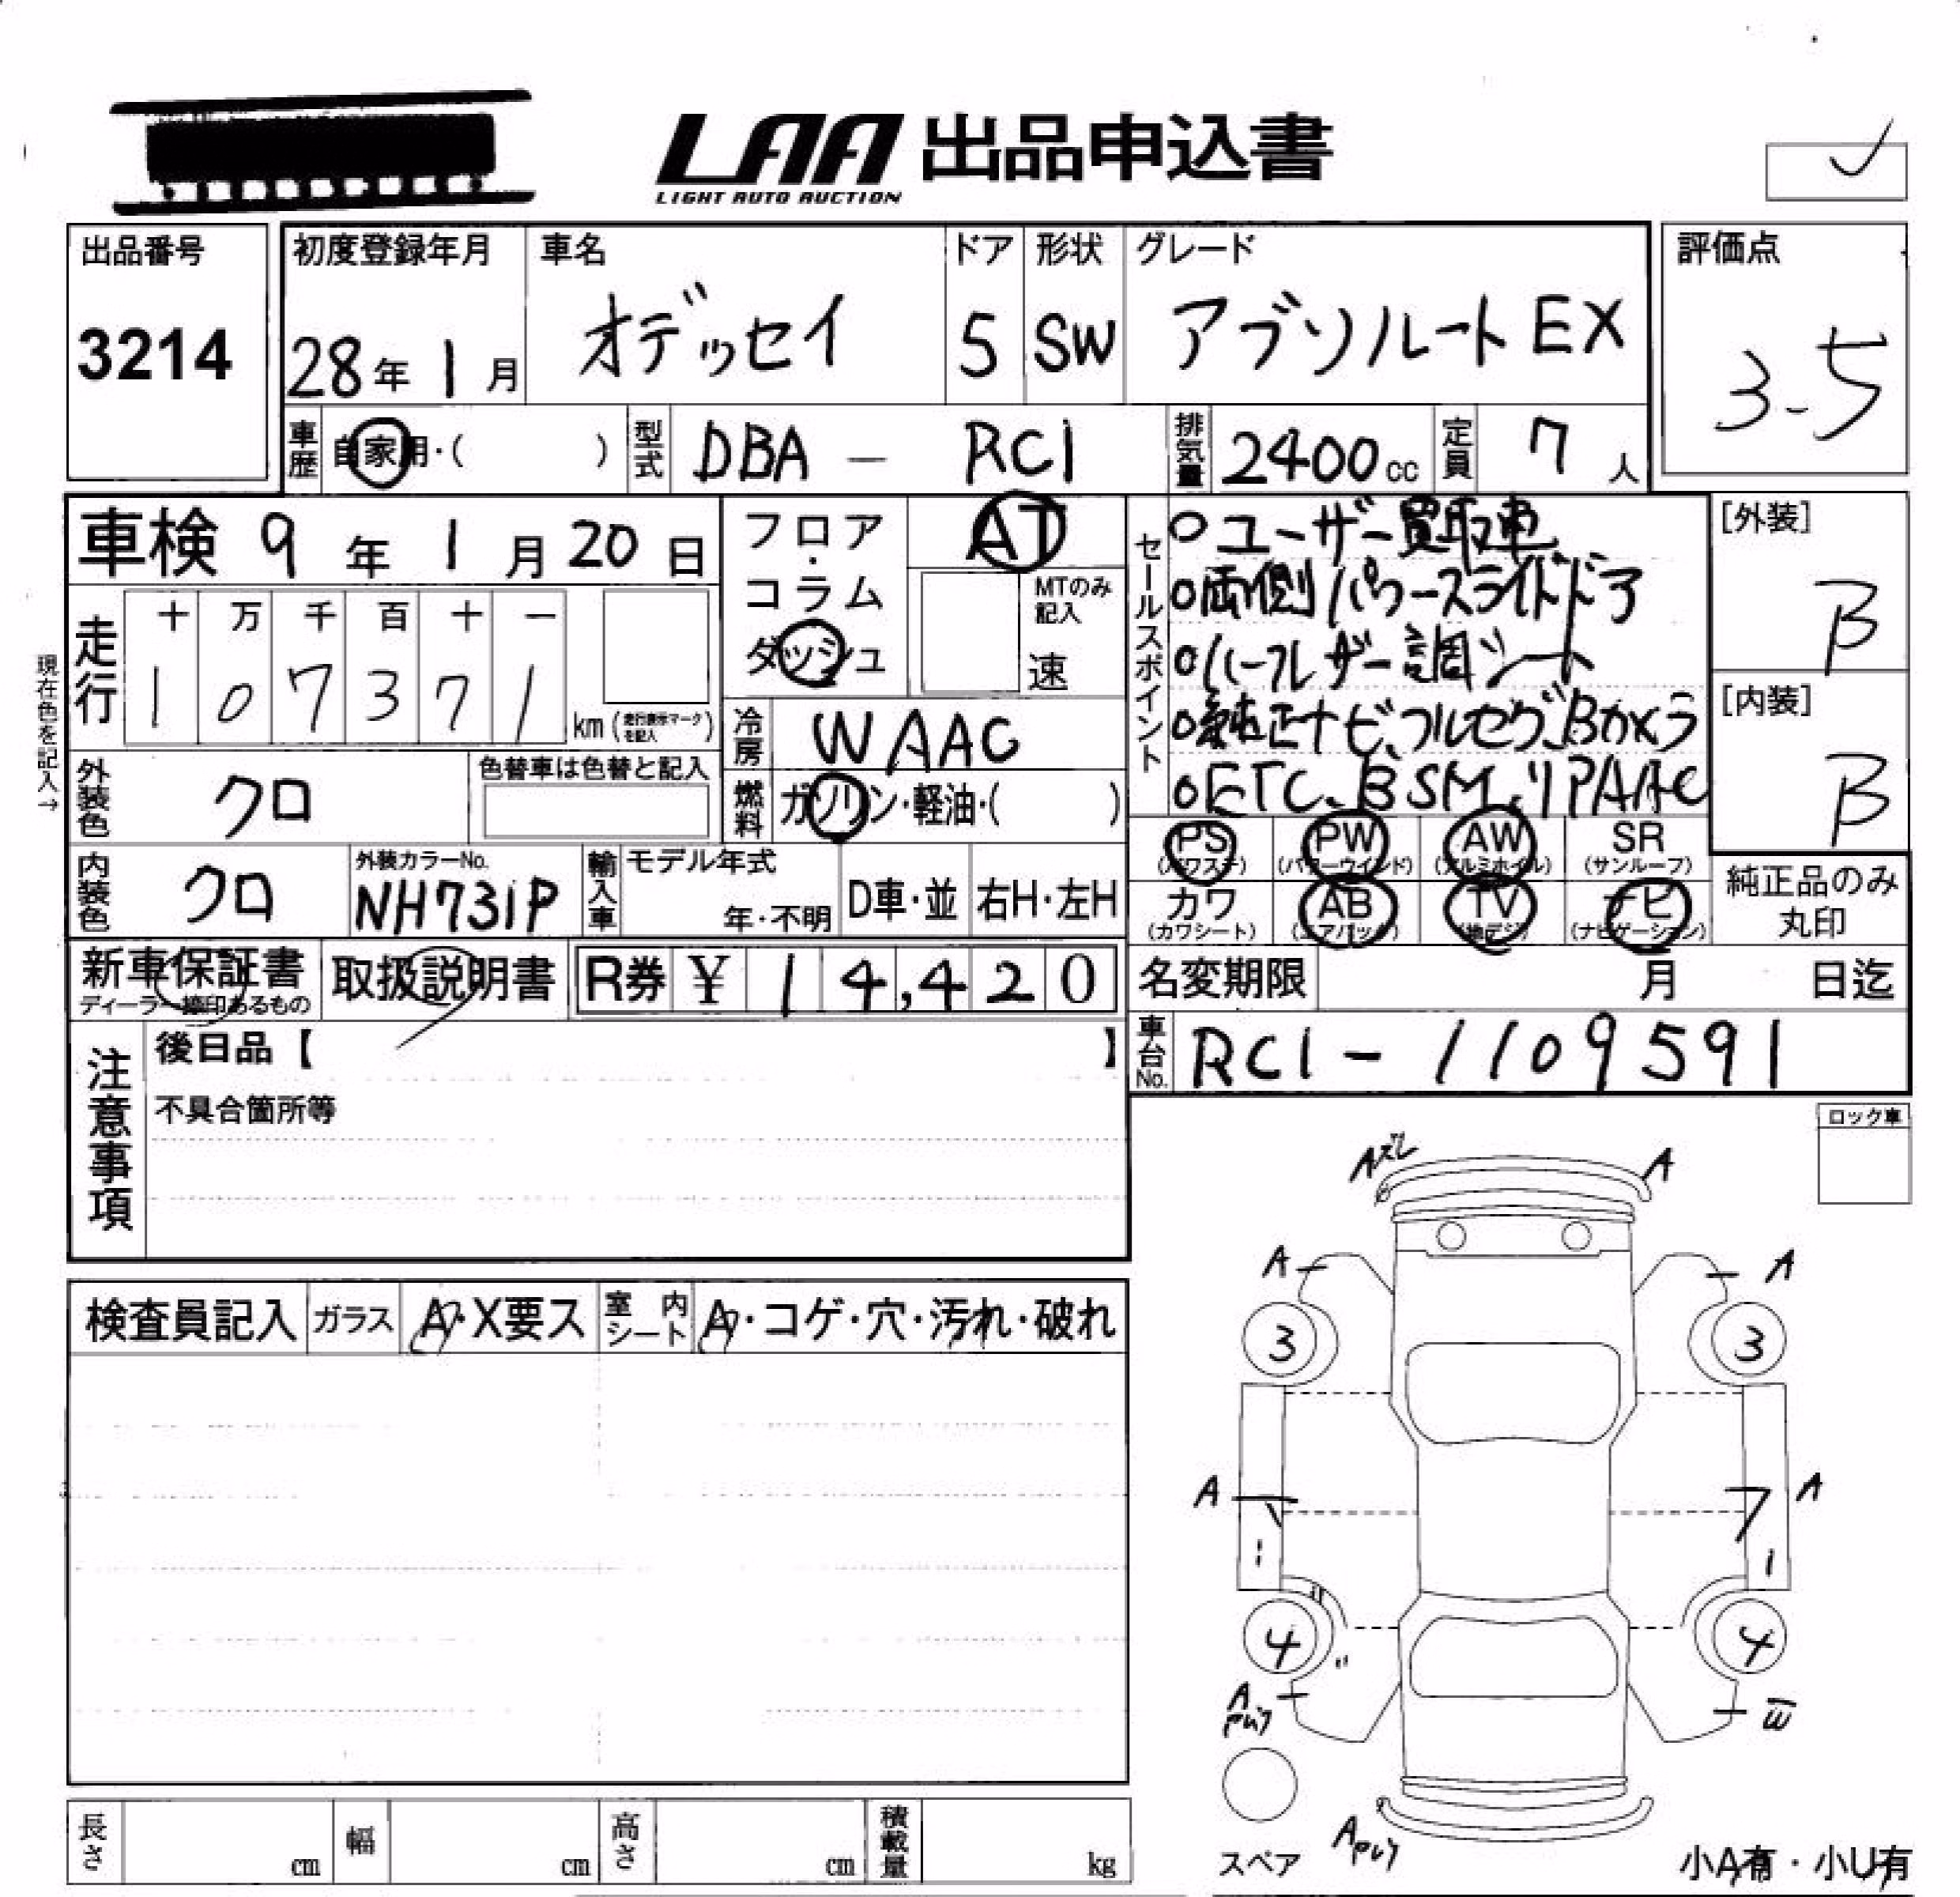 LAA 出品申込書
LIGHT AUTO AUCTION
出品番号
3214
初度登録年月
28年 1月
車名
オデッセイ
ドア
5
形状
SW
グレード
アブソルート EX
評価点
3.5
車歴
自家用・( )
型式
DBA - RC1
排気量
2400cc
定員
7人
車検 9年 1月 20日
フロア・コラム
ダッシュ
AT
MTのみ記入
速
セールスポイント
○ユーザー買取車
○両側パワースライドドア
○ハーフレザー調シート
○純正ナビ、フルセグ、Bカメラ
○ETC、BSM、リアAAC
[外装]
B
[内装]
B
現在色を記入→
走行
十 万 千 百 十 一
1 0 7 3 7 1
km (走行表示マークを記入)
冷房
WAAC
燃料
ガソリン・軽油・( )
外装色
クロ
色替車は色替と記入
内装色
クロ
外装カラーNo.
NH731P
輸入車
モデル年式
年・不明
D車・並
右H・左H
PS
(パワステ)
PW
(パワーウインド)
AW
(アルミホイル)
SR
(サンルーフ)
カワ
(カワシート)
AB
(エアバック)
TV
(地デジ)
ナビ
(ナビゲーション)
純正品のみ
丸印
新車保証書
ディーラー捺印あるもの
取扱説明書
R券 ¥ 14,420
名変期限
月 日迄
車台No.
RC1-1109591
注意事項
後日品【 】
不具合箇所等
ロック車
検査員記入
ガラス
A・X要ス
室内シート
A・コゲ・穴・汚れ・破れ
Aズレ
A
A
A
3
3
A
A
1
1
4
4
A
W
A
スペア
小A有・小U有
長さ
cm
幅
cm
高さ
cm
積載量
kg